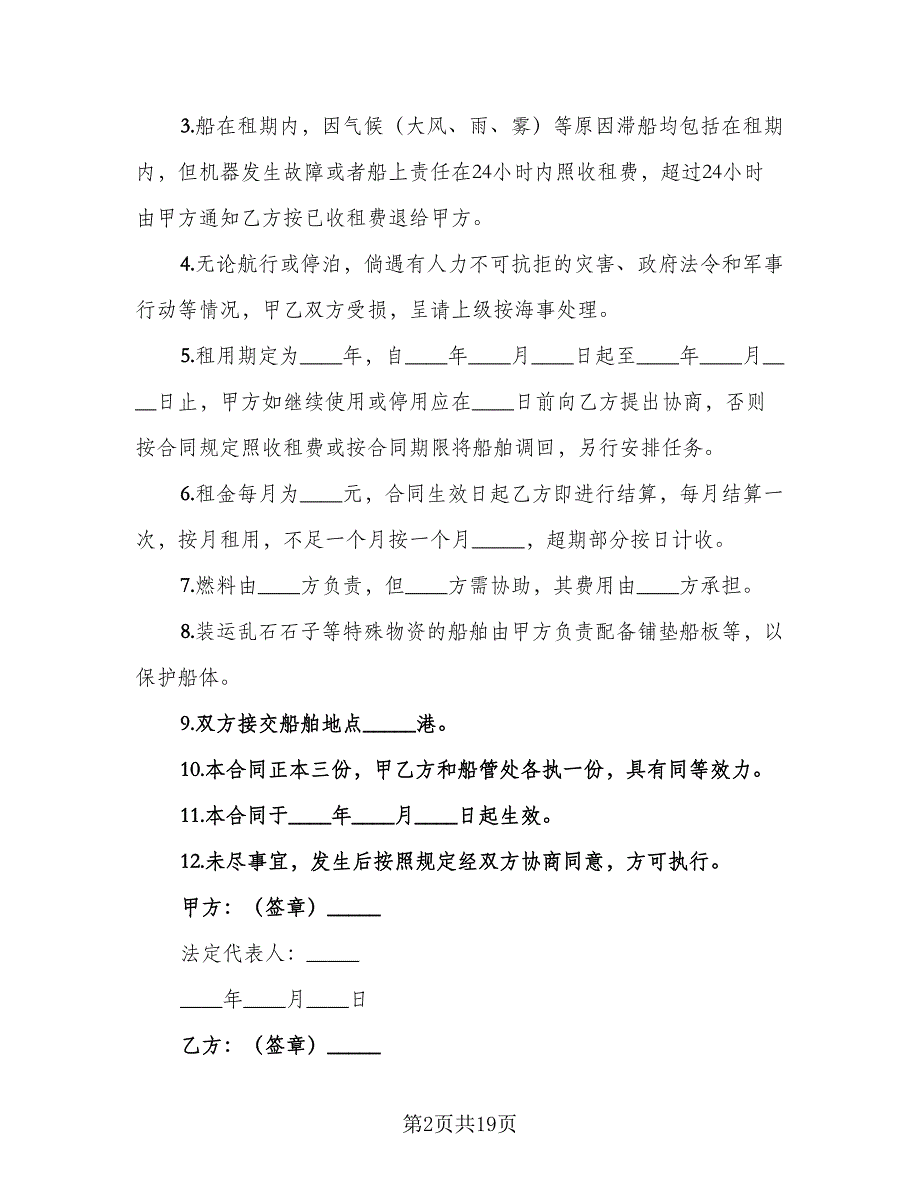 3.船在租期内，因气候（大风、雨、雾）等原因滞船均包括在租期
内，但机器发生故障或者船上责任在24小时内照收租费，超过24小时
由甲方通知乙方按已收租费退给甲方。
4.无论航行或停泊，倘遇有人力不可抗拒的灾害、政府法令和军事
行动等情况，甲乙双方受损，呈请上级按海事处理。
5.租用期定为____年，自____年____月____日起至____年____月__
__日止，甲方如继续使用或停用应在____日前向乙方提出协商，否则
按合同规定照收租费或按合同期限将船舶调回，另行安排任务。
6.租金每月为____元，合同生效日起乙方即进行结算，每月结算一
次，按月租用，不足一个月按一个月_____，超期部分按日计收。
7.燃料由____方负责，但____方需协助，其费用由____方承担。
8.装运乱石石子等特殊物资的船舶由甲方负责配备铺垫船板等，以
保护船体。
9.双方接交船舶地点_____港。
10.本合同正本三份，甲乙方和船管处各执一份，具有同等效力。
11.本合同于____年____月____日起生效。
12.未尽事宜，发生后按照规定经双方协商同意，方可执行。
甲方：（签章）_____
法定代表人：_____
____年____月____日
乙方：（签章）_____
第2页共19页